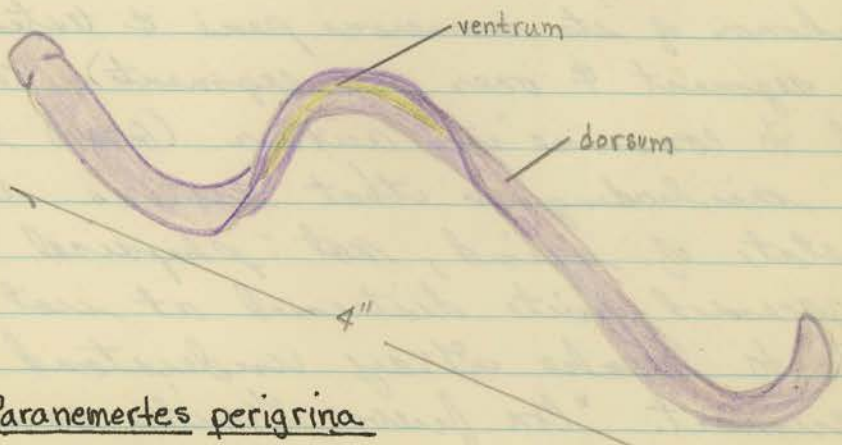 ventrum
dorsum
4"
Paranemertes perigrina